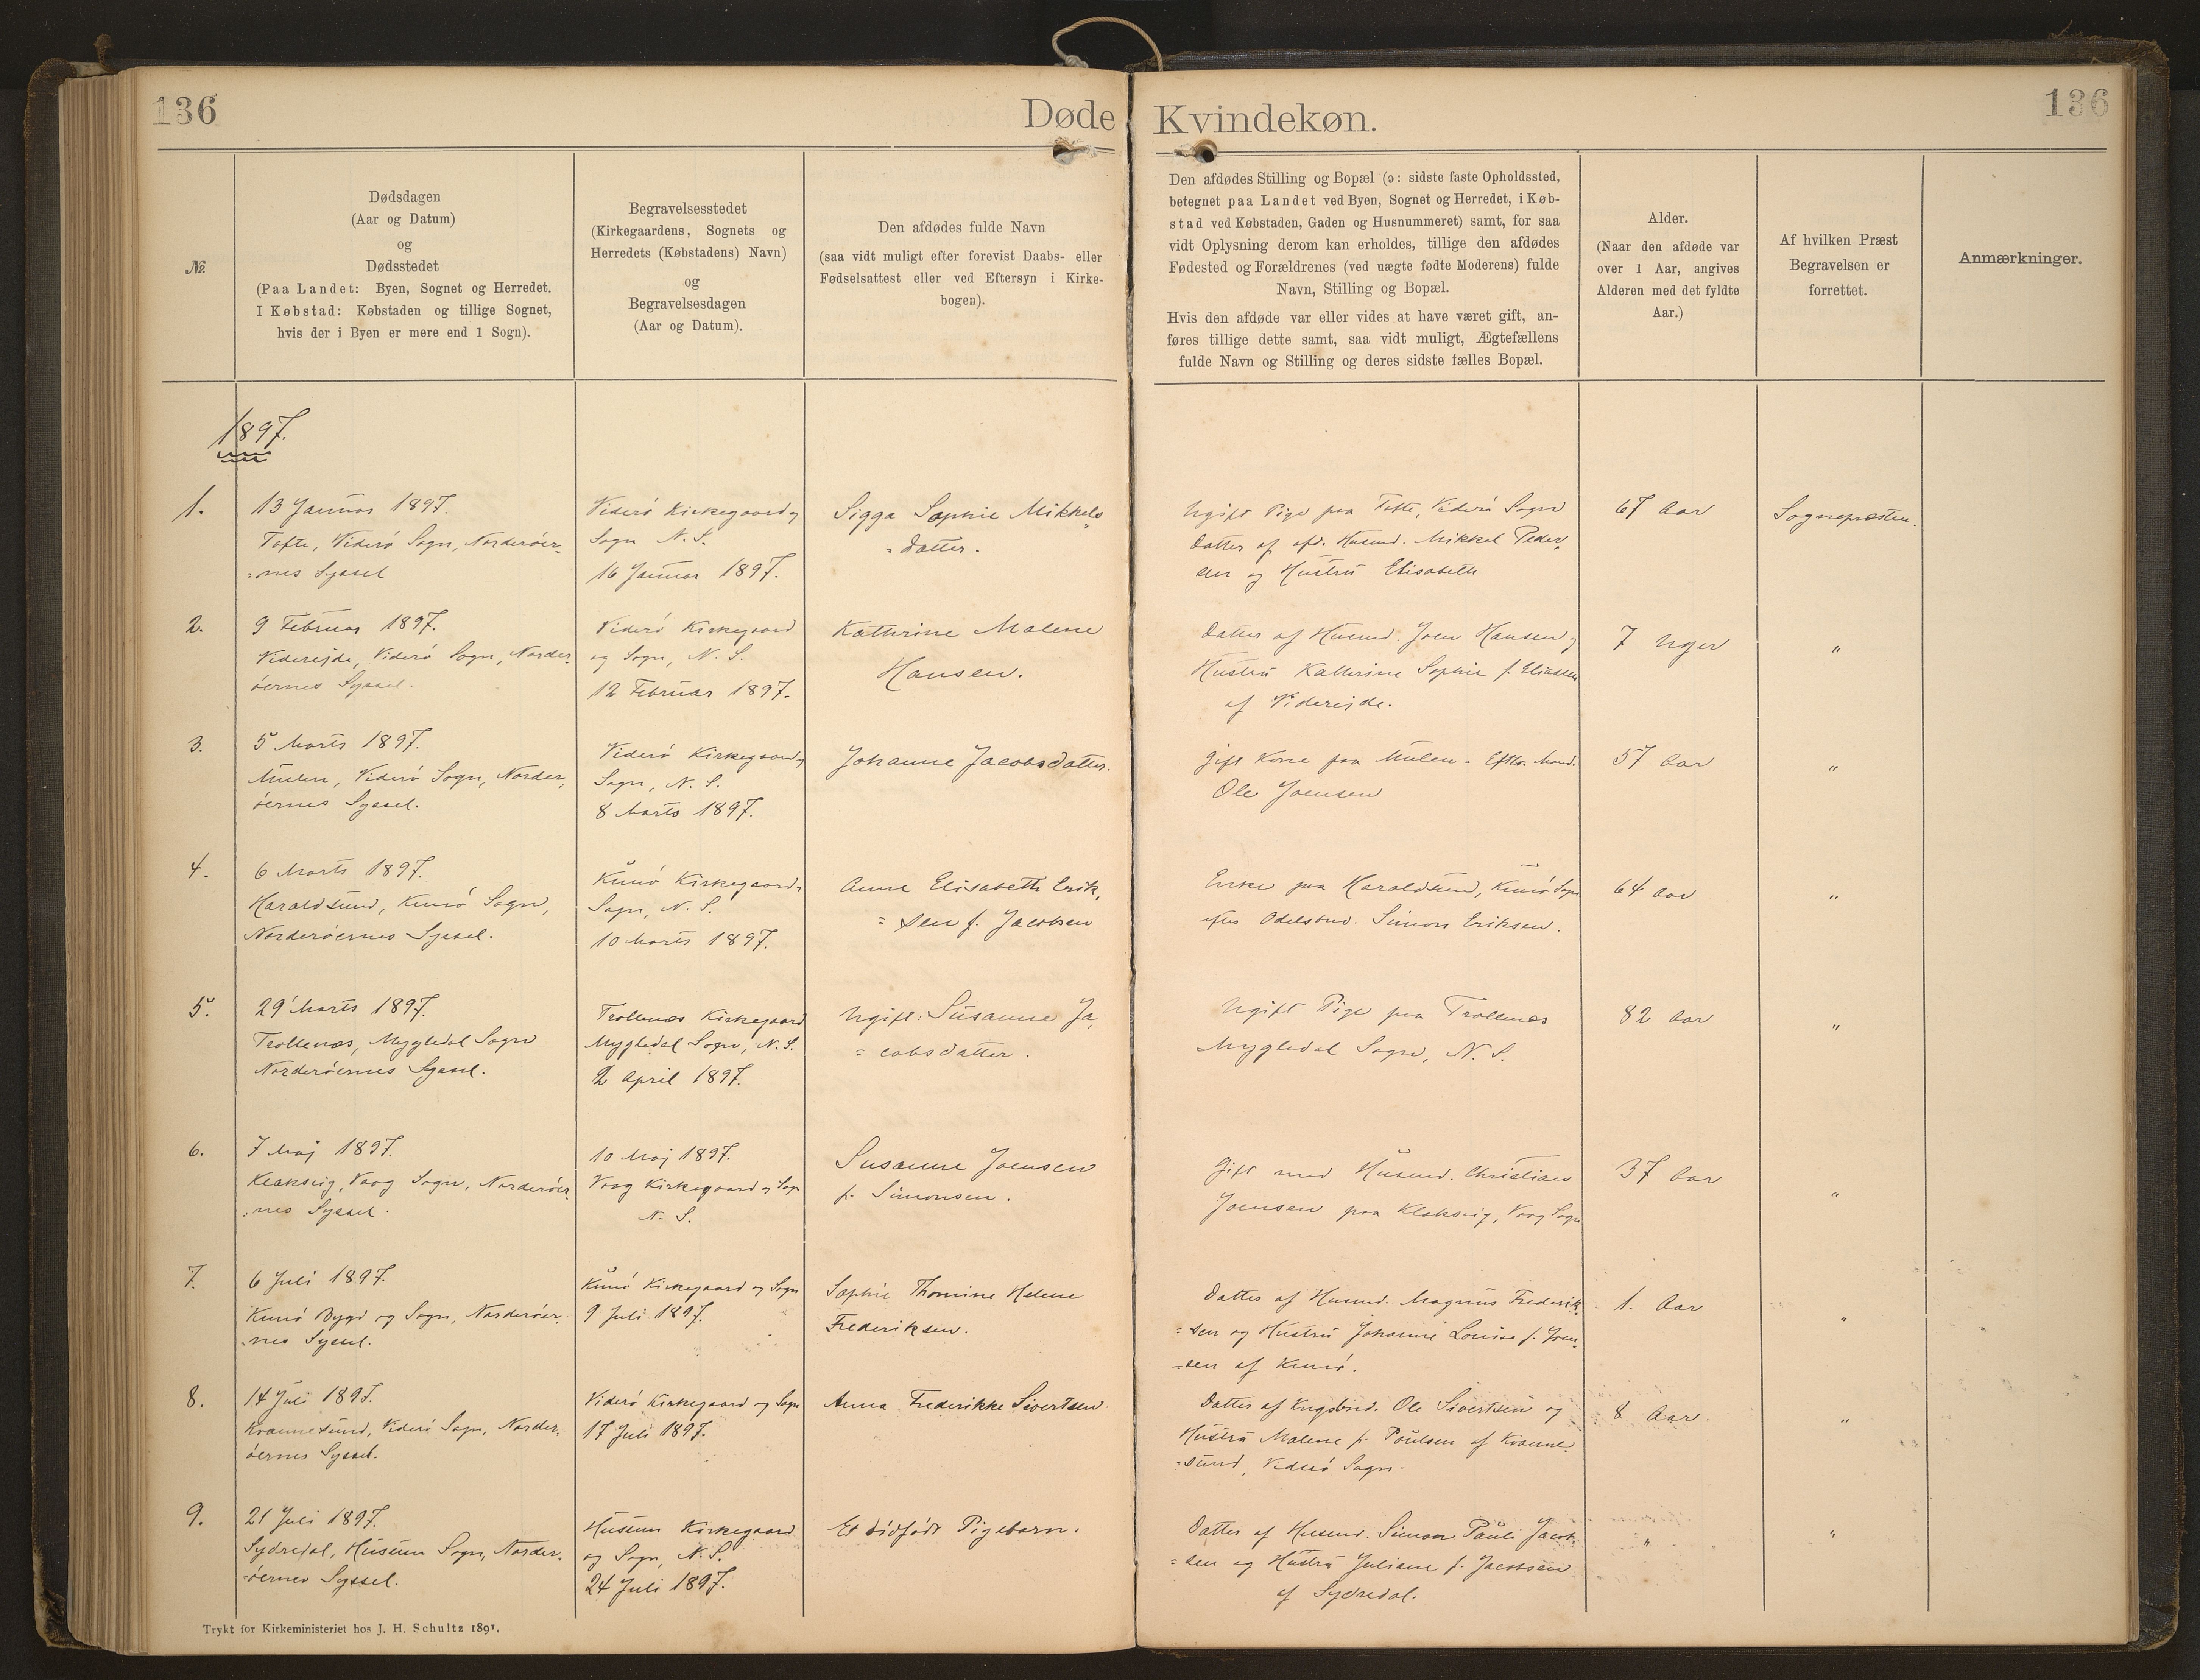 136
Døde
Kvindekøn.
136
№
Dødsdagen
(Aar og Datum)
og
Dødsstedet
(Paa Landet: Byen, Sognet og Herredet.
I Købstad: Købstaden og tillige Sognet,
hvis der i Byen er mere end 1 Sogn).
Begravelsesstedet
(Kirkegaardens, Sognets og
Herredets (Købstadens) Navn)
og
Begravelsesdagen
(Aar og Datum).
Den afdødes fulde Navn
(saa vidt muligt efter forevist Daabs- eller
Fødselsattest eller ved Eftersyn i Kirke-
bogen).
Den afdødes Stilling og Bopæl (ɔ: sidste faste Opholdssted,
betegnet paa Landet ved Byen, Sognet og Herredet, i Køb-
stad ved Købstaden, Gaden og Husnummeret) samt, for saa
vidt Oplysning derom kan erholdes, tillige den afdødes
Fødested og Forældrenes (ved uægte fødte Moderens) fulde
Navn, Stilling og Bopæl.
Hvis den afdøde var eller vides at have været gift, an-
føres tillige dette samt, saa vidt muligt, Ægtefællens
fulde Navn og Stilling og deres sidste fælles Bopæl.
Alder.
(Naar den afdøde var
over 1 Aar, angives
Alderen med det fyldte
Aar.)
Af hvilken Præst
Begravelsen er
forrettet.
Anmærkninger.
1897.
1.
13 Januar 1897.
Tofte, Viderö Sogn, Norderöer-
=nes Syssel
Viderö Kirkegaard og
Sogn N. S.
16 Januar 1897.
Sigga Sophie Mikkels
=datter.
Ugift Pige paa Tofte, Viderö Sogn
Datter af afd. Husmd. Mikkel Peder-
sen og Hustru Elisabeth
67 Aar
Sognepræsten.
2.
9 Februar 1897.
Viderejde, Viderö Sogn, Norder-
öernes Syssel.
Viderö Kirkegaard
og Sogn, N. S.
12 Februar 1897.
Kathrine Malene
Hansen.
Datter af Husmd. Joen Hansen og
Hustru Kathrine Sophie f. Eliassen
af Viderejde.
7 Uger
"
3.
5 Marts 1897.
Mulen, Viderö Sogn, Norder-
öernes Syssel.
Viderö Kirkegaard og
Sogn, N. S.
8 Marts 1897.
Johanne Jacobsdatter.
Gift Kone paa Mulen. Eftlv. Mand.
Ole Joensen
57 Aar
"
4.
6 Marts 1897.
Haraldsund, Kunö Sogn,
Norderöernes Syssel.
Kunö Kirkegaard og
Sogn, N. S.
10 Marts 1897.
Anne Elisabeth Erik-
=sen f. Jacobsen
Enke paa Haraldsund, Kunö Sogn
efter Odelsbnd. Simon Eriksen.
64 Aar
"
5.
29 Marts 1897.
Trollenæs, Mygledal Sogn
Norderöernes Syssel.
Trollenæs Kirkegaard
Mygledal Sogn, N. S.
2 April 1897.
Ugift: Susanne Ja-
=cobsdatter.
Ugift Pige paa Trollenæs
Mygledal Sogn, N. S.
82 Aar
"
6.
7 Maj 1897.
Klaksvig, Vaag Sogn, Norderöer-
=nes Syssel.
10 Maj 1897.
Vaag Kirkegaard og Sogn
N. S.
Susanne Joensen
f. Simonsen.
Gift med Husmd. Christian
Joensen paa Klaksvig, Vaag Sogn
37 Aar
"
7.
6 Juli 1897.
Kunö Bygd og Sogn, Norderöer-
=nes Syssel.
Kunö Kirkegaard og Sogn
9 Juli 1897.
Sophie Thomine Helene
Frederiksen.
Datter af Husmd. Magnus Frederik-
=sen og Hustru Johanne Louise f. Joen-
=sen af Kunö.
1. Aar
"
8.
14 Juli 1897.
Kvannesund, Viderö Sogn, Norder-
öernes Syssel.
Viderö Kirkegaard og Sogn
17 Juli 1897.
Anna Frederikke Sivertsen.
Datter af Kngsbnd. Ole Sivertsen og
Hustru Malene f. Poulsen af Kvanne-
=sund, Viderö Sogn.
8 Aar.
"
9.
21 Juli 1897.
Sydredal, Husum Sogn, Norder-
=öernes Syssel.
Husum Kirkegaard
og Sogn, N. S.
24 Juli 1897.
Et dödfödt Pigebarn.
Datter af Husmd. Simon Pauli Jacob-
=sen og Hustru Juliane f. Jacobsen
af Sydredal.
"
"
Trykt for Kirkeministeriet hos J. H. Schultz 1891.